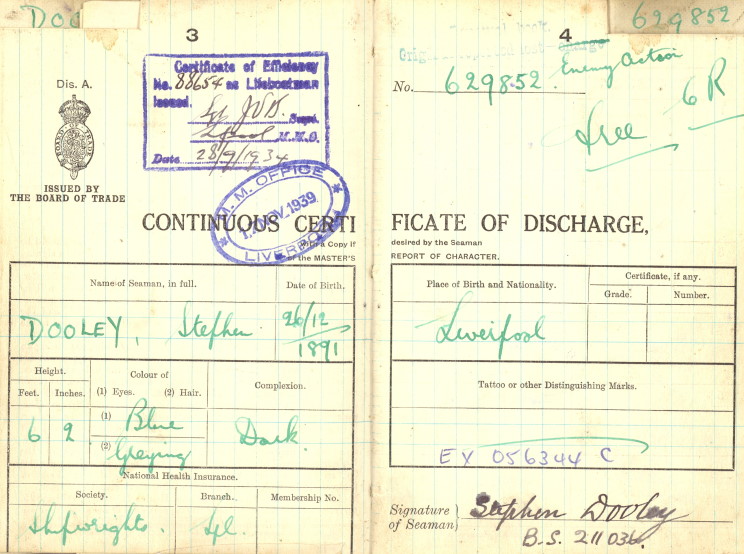 DOO
3
4
629852
Certificate of Efficiency
No. 88654 as Lifeboatman
Issued.
Supt.
M.M.O.
Date 28/9/1934
Dis. A.
No. 629852
Enemy Action
free 6R
ISSUED BY
THE BOARD OF TRADE
M. M. OFFICE
NOV. 1939
LIVERPOOL
CONTINUOUS CERTIFICATE OF DISCHARGE,
or a Copy if desired by the Seaman
of the MASTER'S REPORT OF CHARACTER.
Name of Seaman, in full.
Date of Birth.
DOOLEY, Stephen
26/12
1891
Place of Birth and Nationality.
Certificate, if any.
Grade.
Number.
Liverpool
Height.
Colour of
Complexion.
Feet.
Inches.
(1) Eyes. (2) Hair.
6
2
(1) Blue
(2) Greying
Dark.
Tattoo or other Distinguishing Marks.
EX 056344 C
National Health Insurance.
Society.
Branch.
Membership No.
Shipwrights.
Lpl.
Signature of Seaman
Stephen Dooley
B.S. 211036.